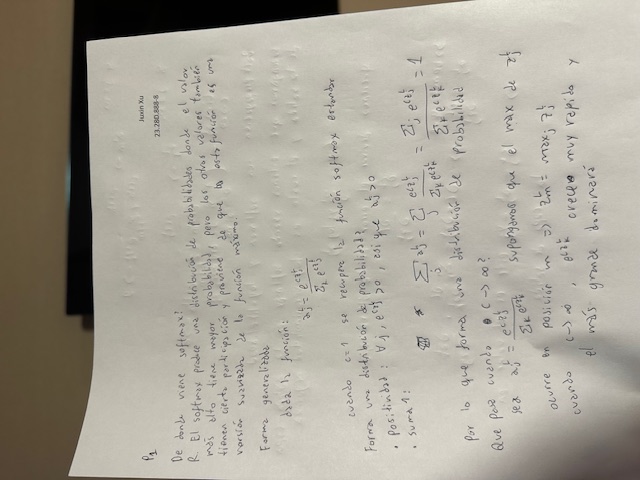 P1
Jiuxin Xu
23.280.888-8
De donde viene softmax?
R. El softmax produce una distribución de probabilidades donde el valor
más alto tiene mayor probabilidad, pero los otros valores también
tienen cierta participación y proviene de que esta función es una
versión suavizada de la función máximo.
Forma generalizada
dada la función:
a_j^L = e^{c z_j^L} / Σ_k e^{c z_j^L}
cuando c=1 se recupera la función softmax estandar
Forma una distribución de probabilidad?
• Positividad: ∀ j, e^{c z_j^L} > 0, asi que a_j^L > 0
• suma 1:
Σ_j a_j^L = Σ_j e^{c z_j^L} / Σ_k e^{c z_k^L} = Σ_j e^{c z_j^L} / Σ_k e^{c z_k^L} = 1
Por lo que forma una distribución de probabilidad
Que pasa cuando c → ∞?
sea a_j^L = e^{c z_j^L} / Σ_k e^{c z_k^L} supongamos que el max de z_j^L
ocurre en posición m => z_m^L = max_j z_j^L
cuando c → ∞, e^{c z_k^L} crece muy rapido y
el más grande dominará